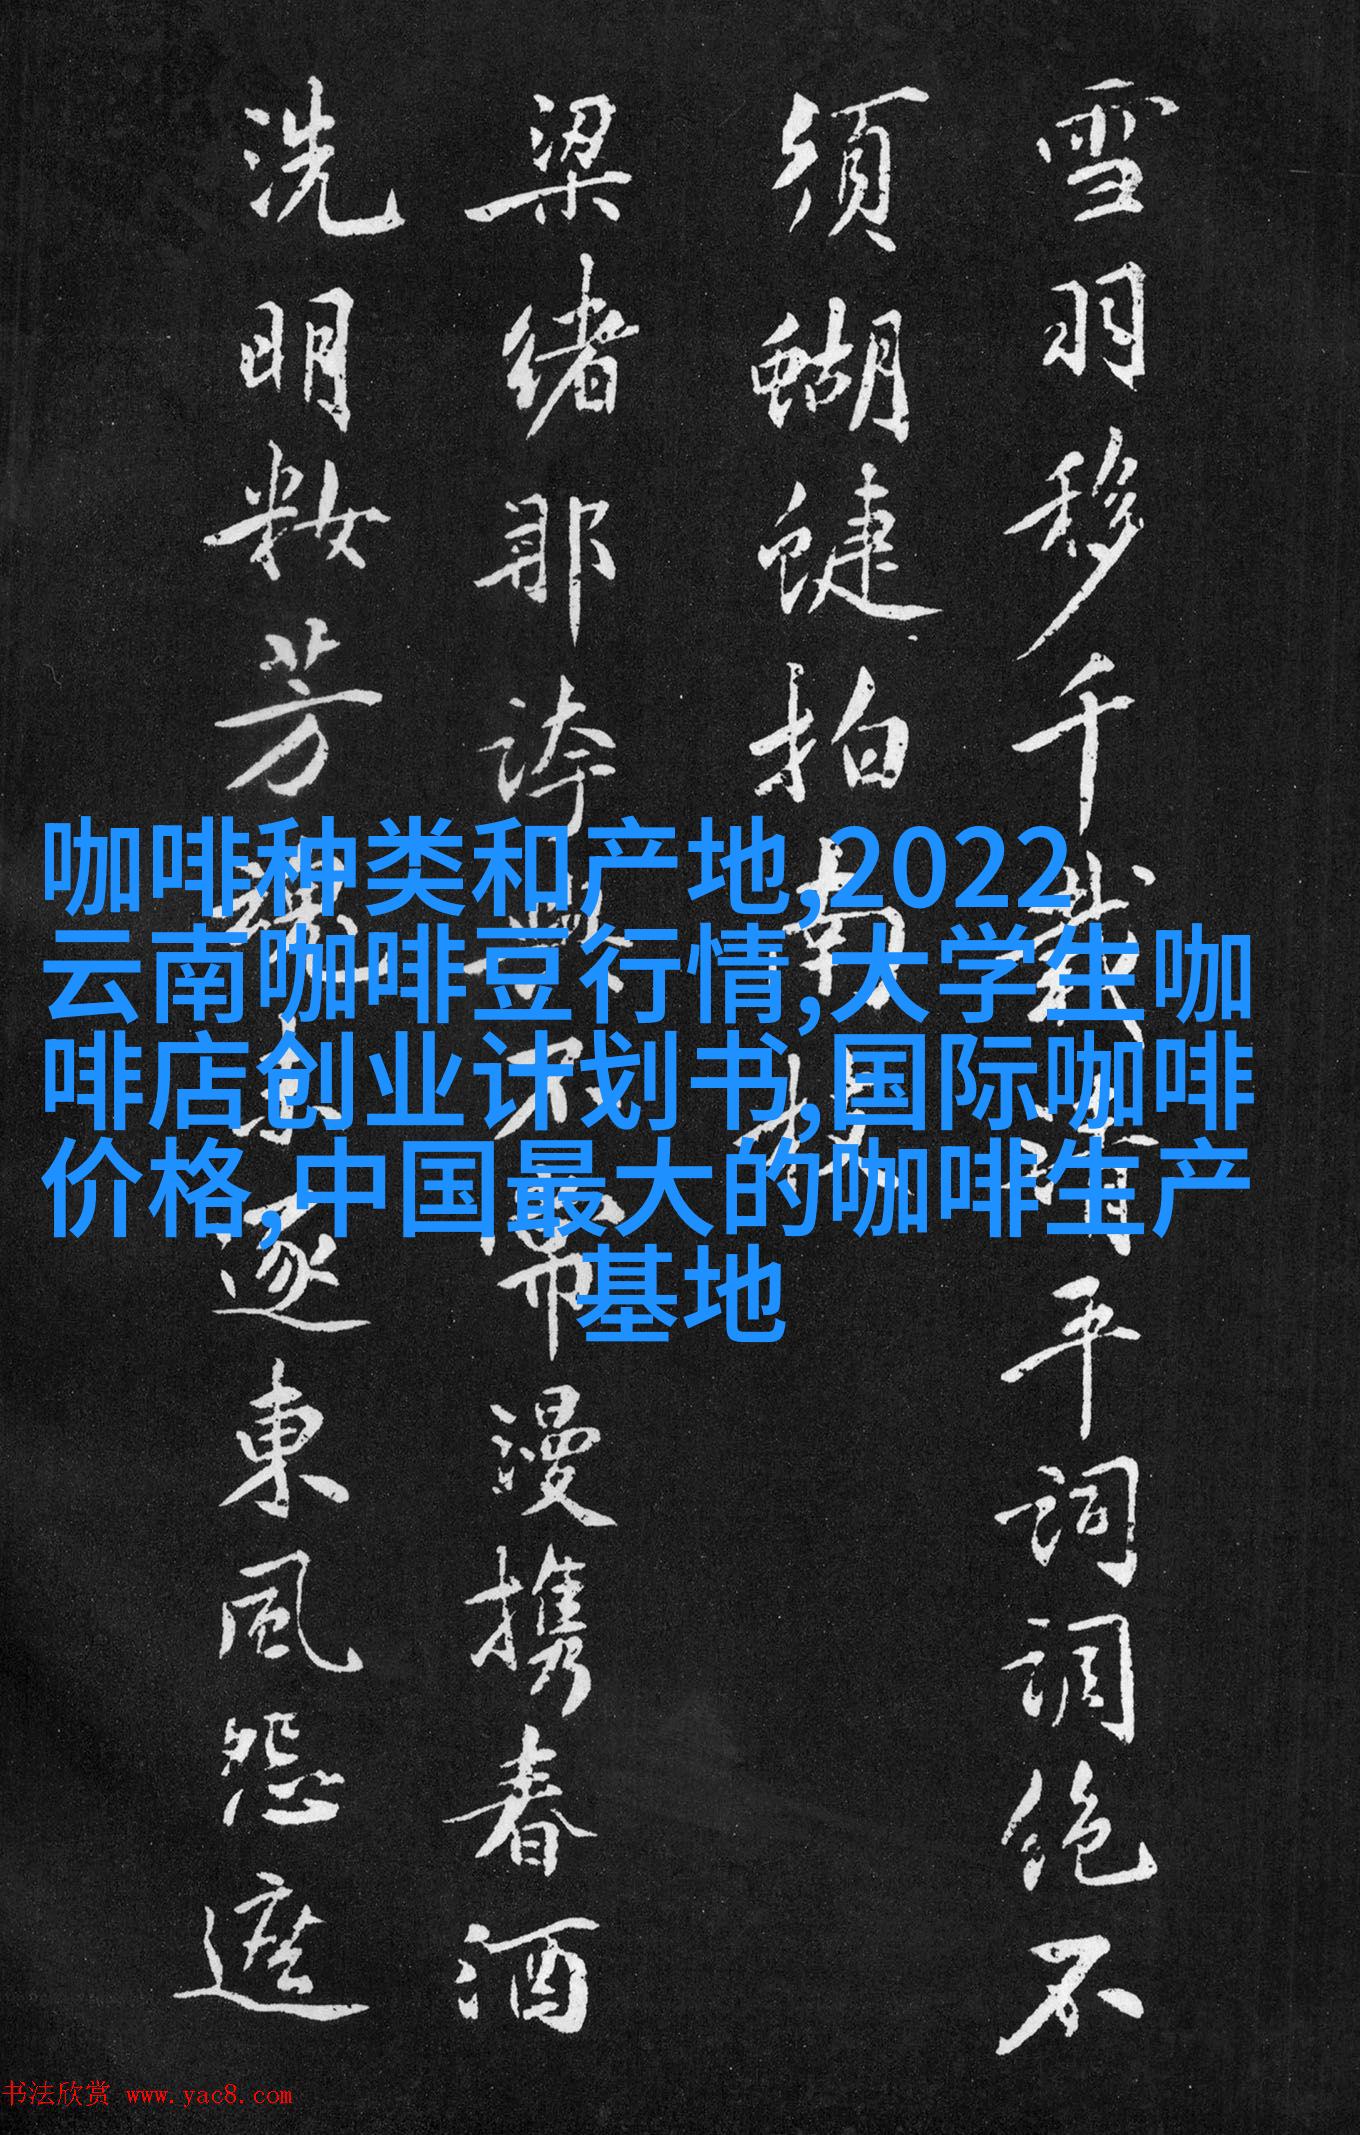 咖啡种类和产地,2022
云南咖啡豆行情,大学生咖
啡店创业计划书,国际咖啡
价格,中国最大的咖啡生产
基地
雪羽移千載清平詞調絶不
須蝴蜨拍南
梁緒那誇不常漫携春酒
洗明籹芳魂未逐東風怨遮
书法欣赏 www.yac8.com